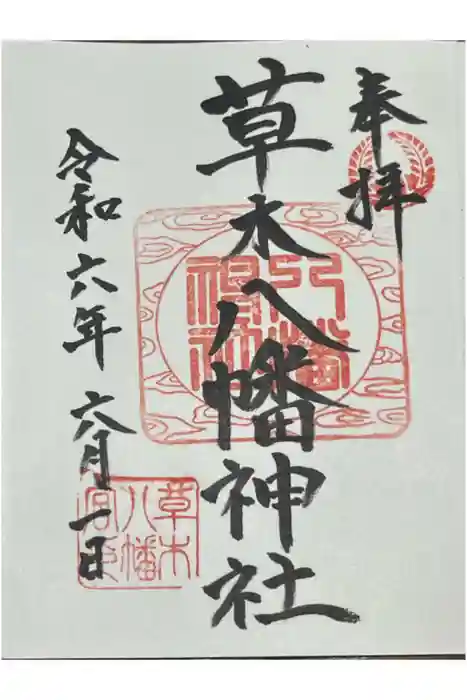 奉拝
草木八幡神社
令和六年六月一日
八幡
草木
八幡